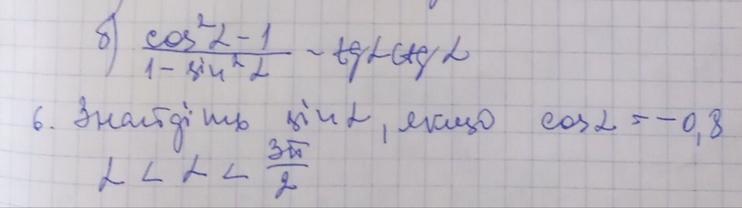 б) (cos²α - 1)/(1 - sin²α) - tgα ctgα
6. Знайдіть sinα, якщо cosα = -0,8
α < α < 3π/2